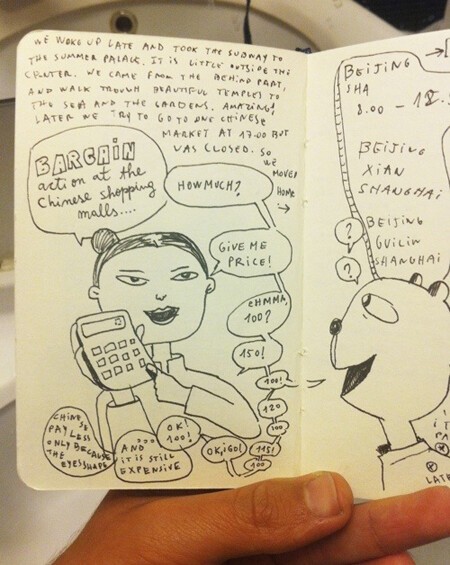 WE WOKE UP LATE AND TOOK THE SUBWAY TO
THE SUMMER PALACE. IT IS LITTLE OUTSIDE THE
CENTER. WE CAME FROM THE BEHIND PART,
AND WALK TROUGH BEAUTIFUL TEMPLES TO
THE SEA AND THE GARDENS. AMAZING!
LATER WE TRY TO GO TO ONE CHINESE
MARKET AT 17.00 BUT
WAS CLOSED. SO
WE
MOVED
HOME
→
BARGAIN
action at the
Chinese shopping
malls....
HOW MUCH?
GIVE ME
PRICE!
EHMMM
100?
150!
100!
120
100
115!
100
OK, i GO!
OK!
100!
AND
iT iS STiLL
EXPENSIVE
CHINESE
PAY LESS
ONLY BECAUSE
THE EYESSHAPE
BEIJING
SHA
8.00 - 18.
BEIJING
XIAN
SHANGHAI
BEIJING
GUILIN
SHANGHAI
?
?
LATE